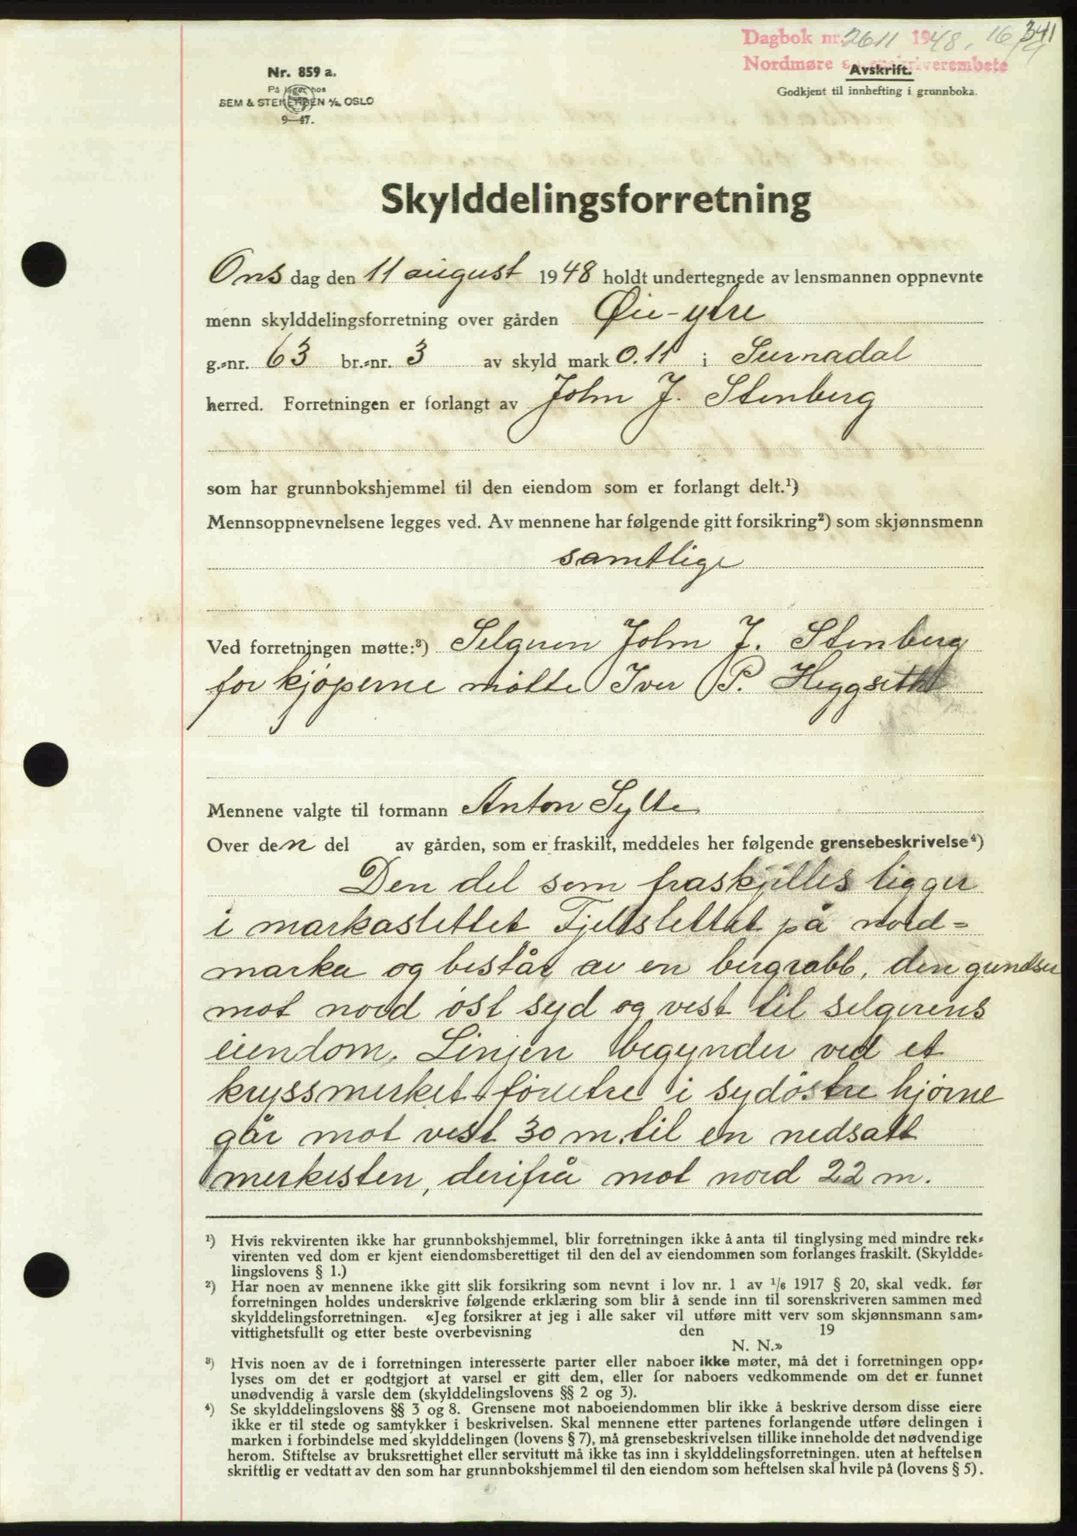 341
Dagbok nr. 2611 1948. 16/9
Nordmøre sorenskriverembete
Nr. 859 a.
På lager hos
SEM & STENERSEN A/S, OSLO
9—47.
Avskrift.
Godkjent til innhefting i grunnboka.
Skylddelingsforretning
Onsdag den 11 august 1948 holdt undertegnede av lensmannen oppnevnte
menn skylddelingsforretning over gården Øie-ytre
g.-nr. 63 br.-nr. 3 av skyld mark 0.11 i Surnadal
herred. Forretningen er forlangt av John J. Stenberg
som har grunnbokshjemmel til den eiendom som er forlangt delt.¹)
Mennsoppnevnelsene legges ved. Av mennene har følgende gitt forsikring²) som skjønnsmenn
samtlige
Ved forretningen møtte:³) Selgeren John J. Stenberg
for kjøperne møtte Iver P. Heggseth
Mennene valgte til formann Anton Sylte
Over den del av gården, som er fraskilt, meddeles her følgende grensebeskrivelse⁴)
Den del som fraskjilles ligger
i markaslettet Fjellslettet på nord=
marka og består av en bergrabb, den grendser
mot nord øst syd og vest til selgerens
eiendom. Linjen begynder ved et
kryssmerket furutre i sydöstre hjørne
går mot vest 30 m. til en nedsatt
merkesten, derifrå mot nord 22 m.
¹) Hvis rekvirenten ikke har grunnbokshjemmel, blir forretningen ikke å anta til tinglysing med mindre rek-
virenten ved dom er kjent eiendomsberettiget til den del av eiendommen som forlanges fraskilt. (Skyldde-
lingslovens § 1.)
²) Har noen av mennene ikke gitt slik forsikring som nevnt i lov nr. 1 av 1/6 1917 § 20, skal vedk. før
forretningen holdes underskrive følgende erklæring som blir å sende inn til sorenskriveren sammen med
skylddelingsforretningen. «Jeg forsikrer at jeg i alle saker vil utføre mitt verv som skjønnsmann sam-
vittighetsfullt og etter beste overbevisning den 19
N. N.»
³) Hvis noen av de i forretningen interesserte parter eller naboer ikke møter, må det i forretningen opp-
lyses om det er godtgjort at varsel er gitt dem, eller for naboers vedkommende om det er funnet
unødvendig å varsle dem (skylddelingslovens §§ 2 og 3).
⁴) Se skylddelingslovens §§ 3 og 8. Grensene mot naboeiendommen blir ikke å beskrive dersom disse eiere
ikke er til stede og samtykker i beskrivelsen. Skal mennene etter partenes forlangende utføre delingen i
marken i forbindelse med skylddelingen (lovens § 7), må grensebeskrivelsen tillike inneholde det nødvendige
herom. Stiftelse av bruksrettighet eller servitutt må ikke tas inn i skylddelingsforretningen. uten at heftelsen
skriftlig er vedtatt av den som har grunnbokshjemmel til den eiendom som heftelsen skal hvile på (lovens § 5).